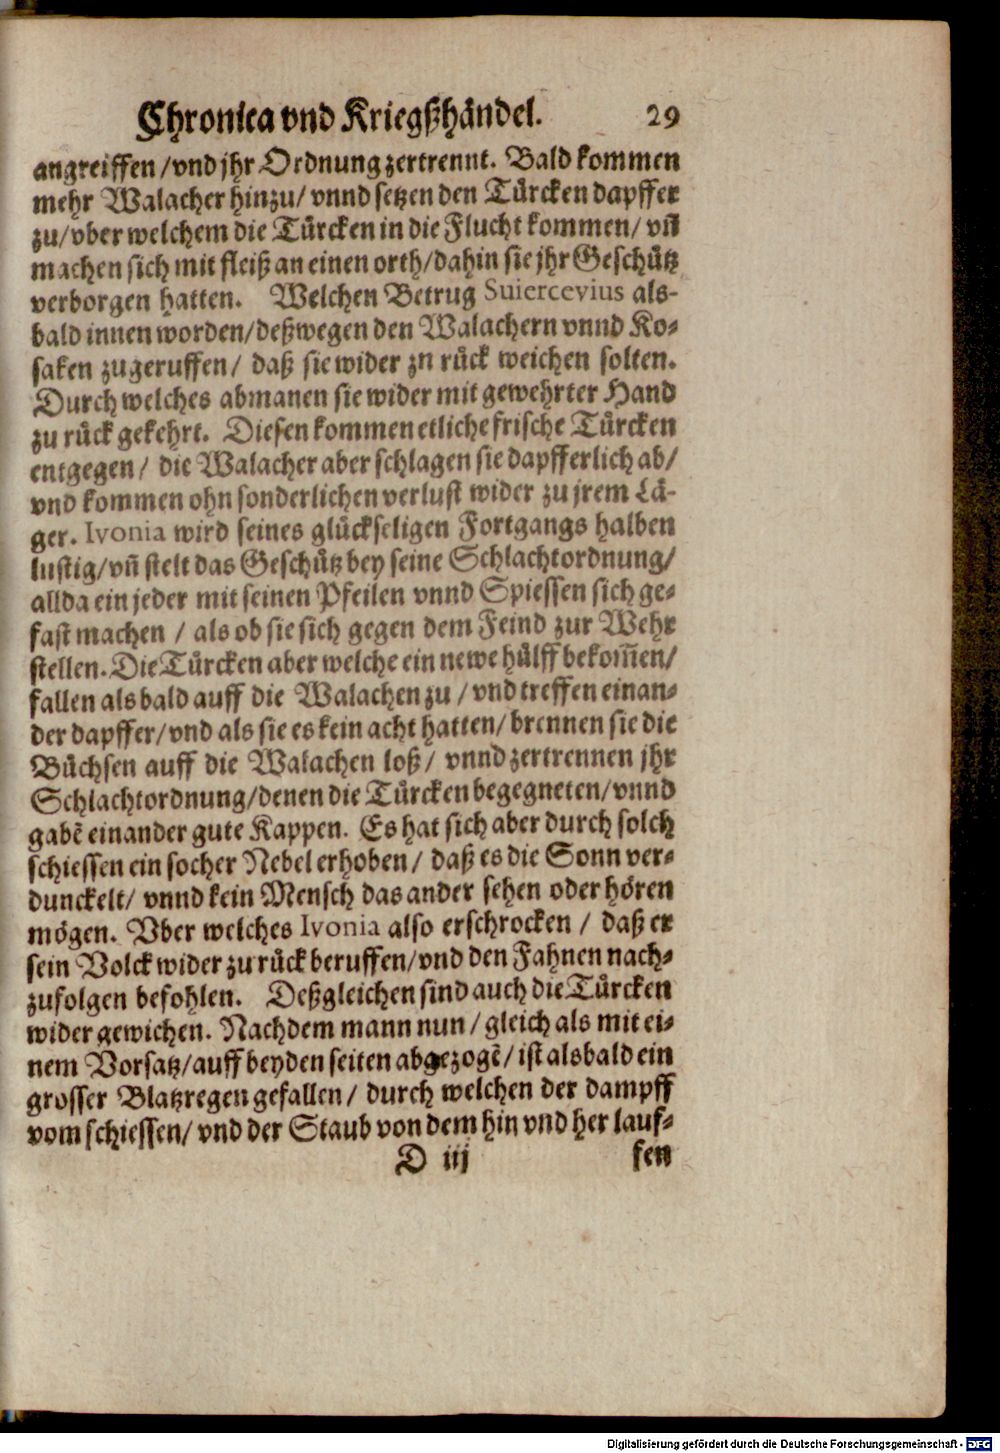 Chronica vnd Kriegßhändel. 29
angreiffen / vnd jhr Ordnung zertrennt. Bald kommen
mehr Walacher hinzu / vnnd setzen den Türcken dapffer
zu / vber welchem die Türcken in die Flucht kommen / vñ
machen sich mit fleiß an einen orth / dahin sie jhr Geschütz
verborgen hatten. Welchen Betrug Suiercevius als-
bald innen worden / deßwegen den Walachern vnnd Ko-
saken zugeruffen / daß sie wider zn rück weichen solten.
Durch welches abmanen sie wider mit gewehrter Hand
zu rück gekehrt. Diesen kommen etliche frische Türcken
entgegen / die Walacher aber schlagen sie dapfferlich ab /
vnd kommen ohn sonderlichen verlust wider zu jrem Lä-
ger. Ivonia wird seines glückseligen Fortgangs halben
lustig / vñ stelt das Geschütz bey seine Schlachtordnung /
allda ein jeder mit seinen Pfeilen vnnd Spiessen sich ge-
fast machen / als ob sie sich gegen dem Feind zur Wehr
stellen. Die Türcken aber welche ein newe hülff bekom̃en /
fallen als bald auff die Walachen zu / vnd treffen einan-
der dapffer / vnd als sie es kein acht hatten / brennen sie die
Büchsen auff die Walachen loß / vnnd zertrennen jhr
Schlachtordnung / denen die Türcken begegneten / vnnd
gabẽ einander gute Kappen. Es hat sich aber durch solch
schiessen ein socher Nebel erhoben / daß es die Sonn ver-
dunckelt / vnnd kein Mensch das ander sehen oder hören
mögen. Vber welches Ivonia also erschrocken / daß er
sein Volck wider zu rück beruffen / vnd den Fahnen nach-
zufolgen befohlen. Deßgleichen sind auch die Türcken
wider gewichen. Nachdem mann nun / gleich als mit ei-
nem Vorsatz / auff beyden seiten abgezogẽ / ist alsbald ein
grosser Blatzregen gefallen / durch welchen der dampff
vom schiessen / vnd der Staub von dem hin vnd her lauf-
D iij fen
Digitalisierung gefördert durch die Deutsche Forschungsgemeinschaft - DFG